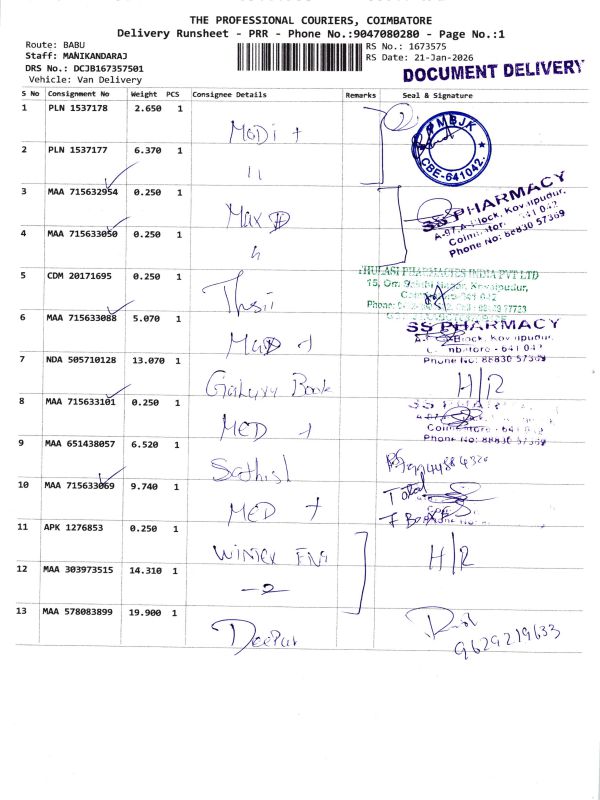 THE PROFESSIONAL COURIERS, COIMBATORE
Delivery Runsheet - PRR - Phone No.:9047080280 - Page No.:1
Route: BABU
Staff: MANIKANDARAJ
DRS No.: DCJB167357501
Vehicle: Van Delivery
RS No.: 1673575
RS Date: 21-Jan-2026
DOCUMENT DELIVERY
S No Consignment No Weight PCS Consignee Details Remarks Seal & Signature
1 PLN 1537178 2.650 1 MODi +
PMBJK
CBE-641042.
2 PLN 1537177 6.370 1 11
3 MAA 715632954 0.250 1 Max
SS PHARMACY
A-97 A-Block, Kovaipudur,
Coimbatore - 641 042
Phone No: 88830 57369
4 MAA 715633050 0.250 1
5 CDM 20171695 0.250 1
THULASI PHARMACIES INDIA PVT LTD
6 MAA 715633088 5.070 1
SS PHARMACY
Block, Kovaipudur,
Coimbatore - 641 042
Phone No: 88830 57369
7 NDA 505710128 13.070 1 Galaxy Book H/R
8 MAA 715633101 0.250 1 MED +
Phone No: 88830 57369
9 MAA 651438057 6.520 1 Sathish
10 MAA 715633069 9.740 1 MED +
Total
11 APK 1276853 0.250 1 H/R
12 MAA 303973515 14.310 1 -2-
13 MAA 578083899 19.900 1 Deepak
9629219633